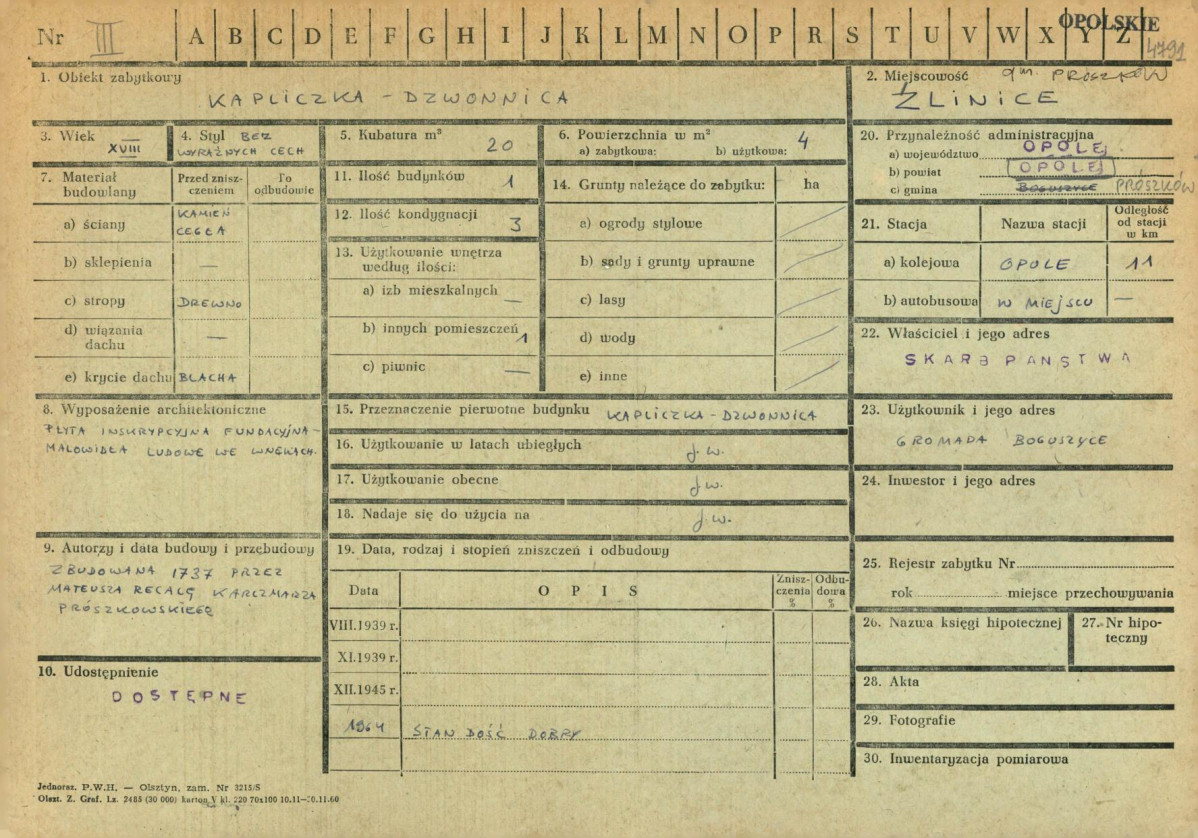 Nr III A B C D E F G H I J K L M N O P R S T U V W X Y Z
OPOLSKIE
4791
1. Obiekt zabytkowy
KAPLICZKA – DZWONNICA
2. Miejscowość gm. PRÓSZKÓW
ŹLINICE
3. Wiek
XVIII
4. Styl BEZ
WYRAŹNYCH CECH
5. Kubatura m³
20
6. Powierzchnia w m²
a) zabytkowa: b) użytkowa: 4
7. Materiał
budowlany
Przed znisz-
czeniem
Po
odbudowie
a) ściany
KAMIEŃ
CEGŁA
b) sklepienia —
c) stropy DREWNO
d) wiązania
dachu —
e) krycie dachu BLACHA
8. Wyposażenie architektoniczne
PŁYTA INSKRYPCYJNA FUNDACYJNA –
MALOWIDŁA LUDOWE WE WNĘKACH.
9. Autorzy i data budowy i przebudowy
ZBUDOWANA 1737 PRZEZ
MATEUSZA RECAŁĘ KARCZMARZA
PRÓSZKOWSKIEGO
10. Udostępnienie
DOSTĘPNE
11. Ilość budynków 1
12. Ilość kondygnacji 3
13. Użytkowanie wnętrza
według ilości:
a) izb mieszkalnych —
b) innych pomieszczeń 1
c) piwnic —
14. Grunty należące do zabytku: ha
a) ogrody stylowe
b) sady i grunty uprawne
c) lasy
d) wody
e) inne
15. Przeznaczenie pierwotne budynku KAPLICZKA – DZWONNICA
16. Użytkowanie w latach ubiegłych j.w.
17. Użytkowanie obecne j.w.
18. Nadaje się do użycia na j.w.
19. Data, rodzaj i stopień zniszczeń i odbudowy
Data OPIS
Znisz-
czenia
%
Odbu-
dowa
%
VIII.1939 r.
XI.1939 r.
XII.1945 r.
1964 STAN DOŚĆ DOBRY
20. Przynależność administracyjna
a) województwo OPOLE
b) powiat OPOLE
c) gmina BOGUSZYCE PRÓSZKÓW
21. Stacja Nazwa stacji
Odległość
od stacji
w km
a) kolejowa OPOLE 11
b) autobusowa W MIEJSCU —
22. Właściciel i jego adres
SKARB PAŃSTWA
23. Użytkownik i jego adres
GROMADA BOGUSZYCE
24. Inwestor i jego adres
25. Rejestr zabytku Nr
rok miejsce przechowywania
26. Nazwa księgi hipotecznej
27. Nr hipo-
teczny
28. Akta
29. Fotografie
30. Inwentaryzacja pomiarowa
Jednoraz. P.W.H. — Olsztyn, zam. Nr 3215/S
Olszt. Z. Graf. Lz. 2485 (30 000) karton V kl. 220 70x100 10.11—30.11.60